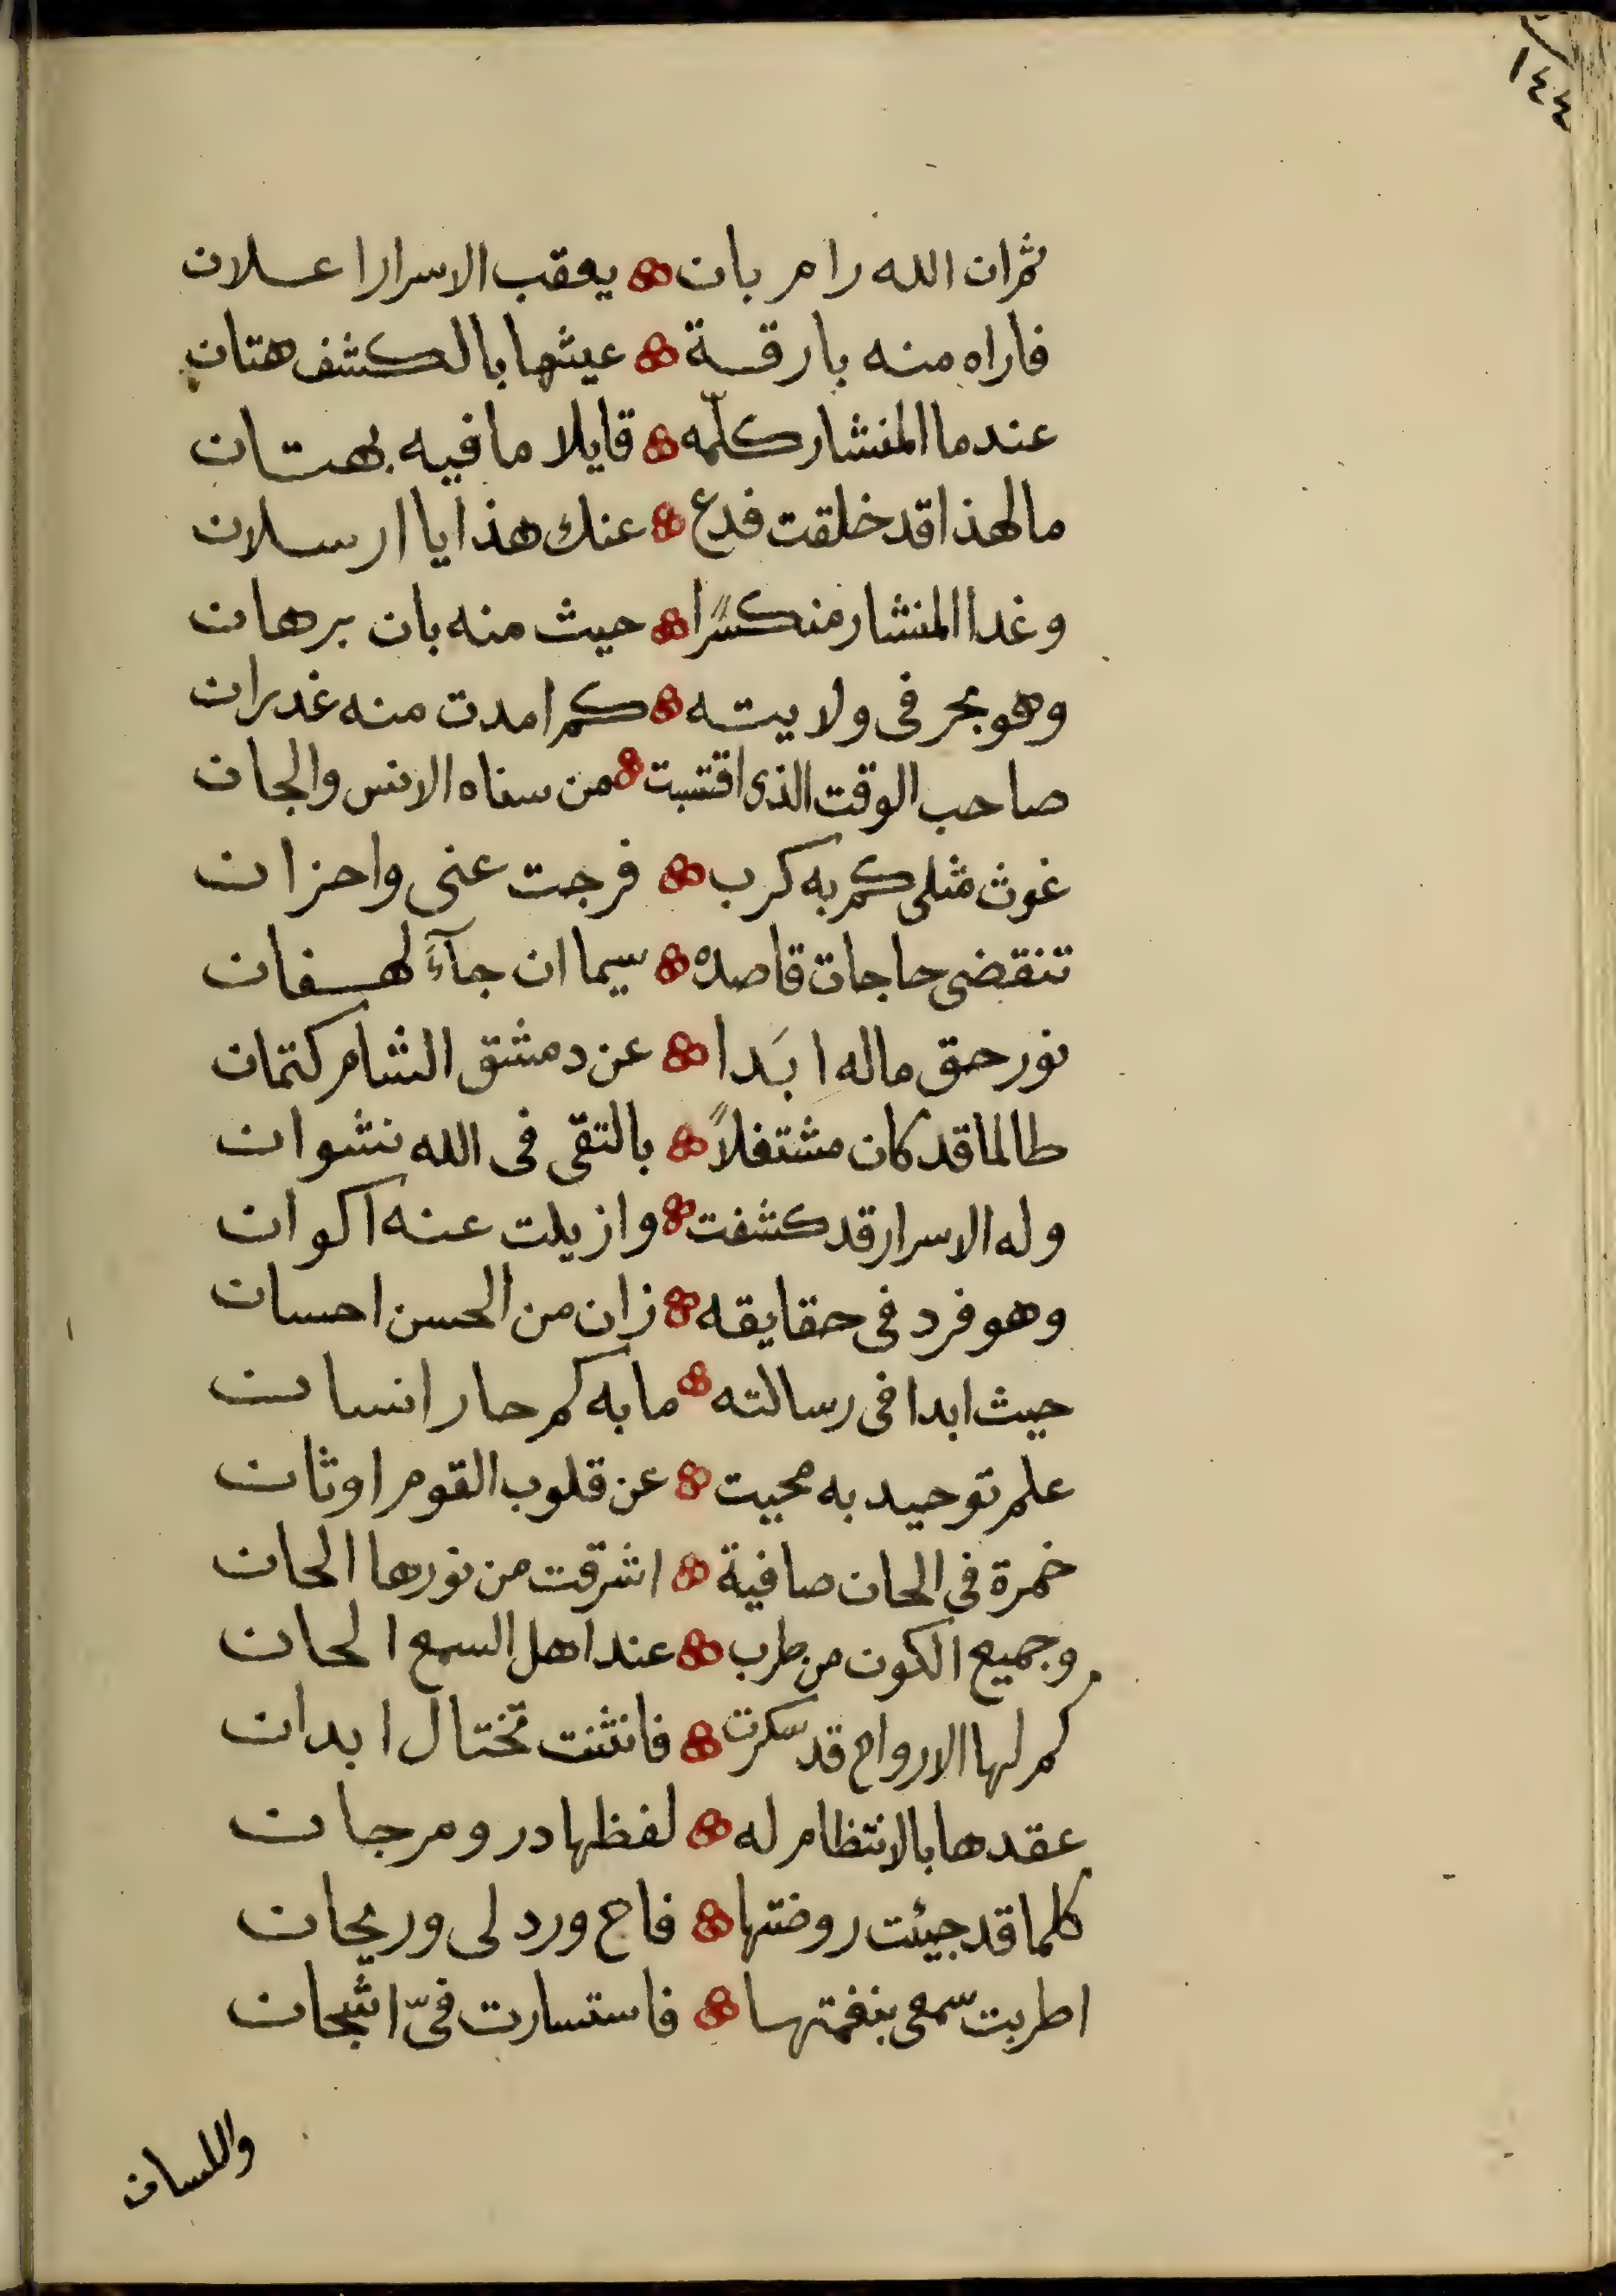 ١٤٤
ثم ان الله رام بان يعقب الاسرار اعلان
فاراه منه بارقة عيثها بالكشف هتان
عندما المنشار كلّمه قايلا ما فيه بهتان
ما لهذا قد خلقت فدع عنك هذا يا ارسلان
وغدا المنشار منكسرًا حيث منه بان برهان
وهو بحر فى ولايته كم امدت منه غدران
صاحب الوقت الذى اقتبست من سناه الانس والجان
غوث مثلى كم به كرب فرجت عنى واحزان
تنقضى حاجات قاصده سيما ان جآء لهفان
نور حق ما له ابَدا عن دمشق الشام كتمان
طالما قد كان مشتغلاً بالتقى فى الله نشوان
وله الاسرار قد كشفت وازيلت عنه اكوان
وهو فرد فى حقايقه زان من الحسن احسان
حيث ابدا فى رسالته ما به كم حار انسان
علم توحيد به محيت عن قلوب القوم اوثان
خمرة فى الحان صافية اشرقت من نورها الحان
وجميع الكون من طرب عند اهل السمع الحان
كم لها الارواح قد سكرت فانثنت تختال ابدان
عقدها بالانتظام له لفظها در ومرجان
كلما قد جيئت روضتها فاح ورد لى وريحان
اطربت سمعى بنغمتها فاستسارت فىّ اشجان
واللسان